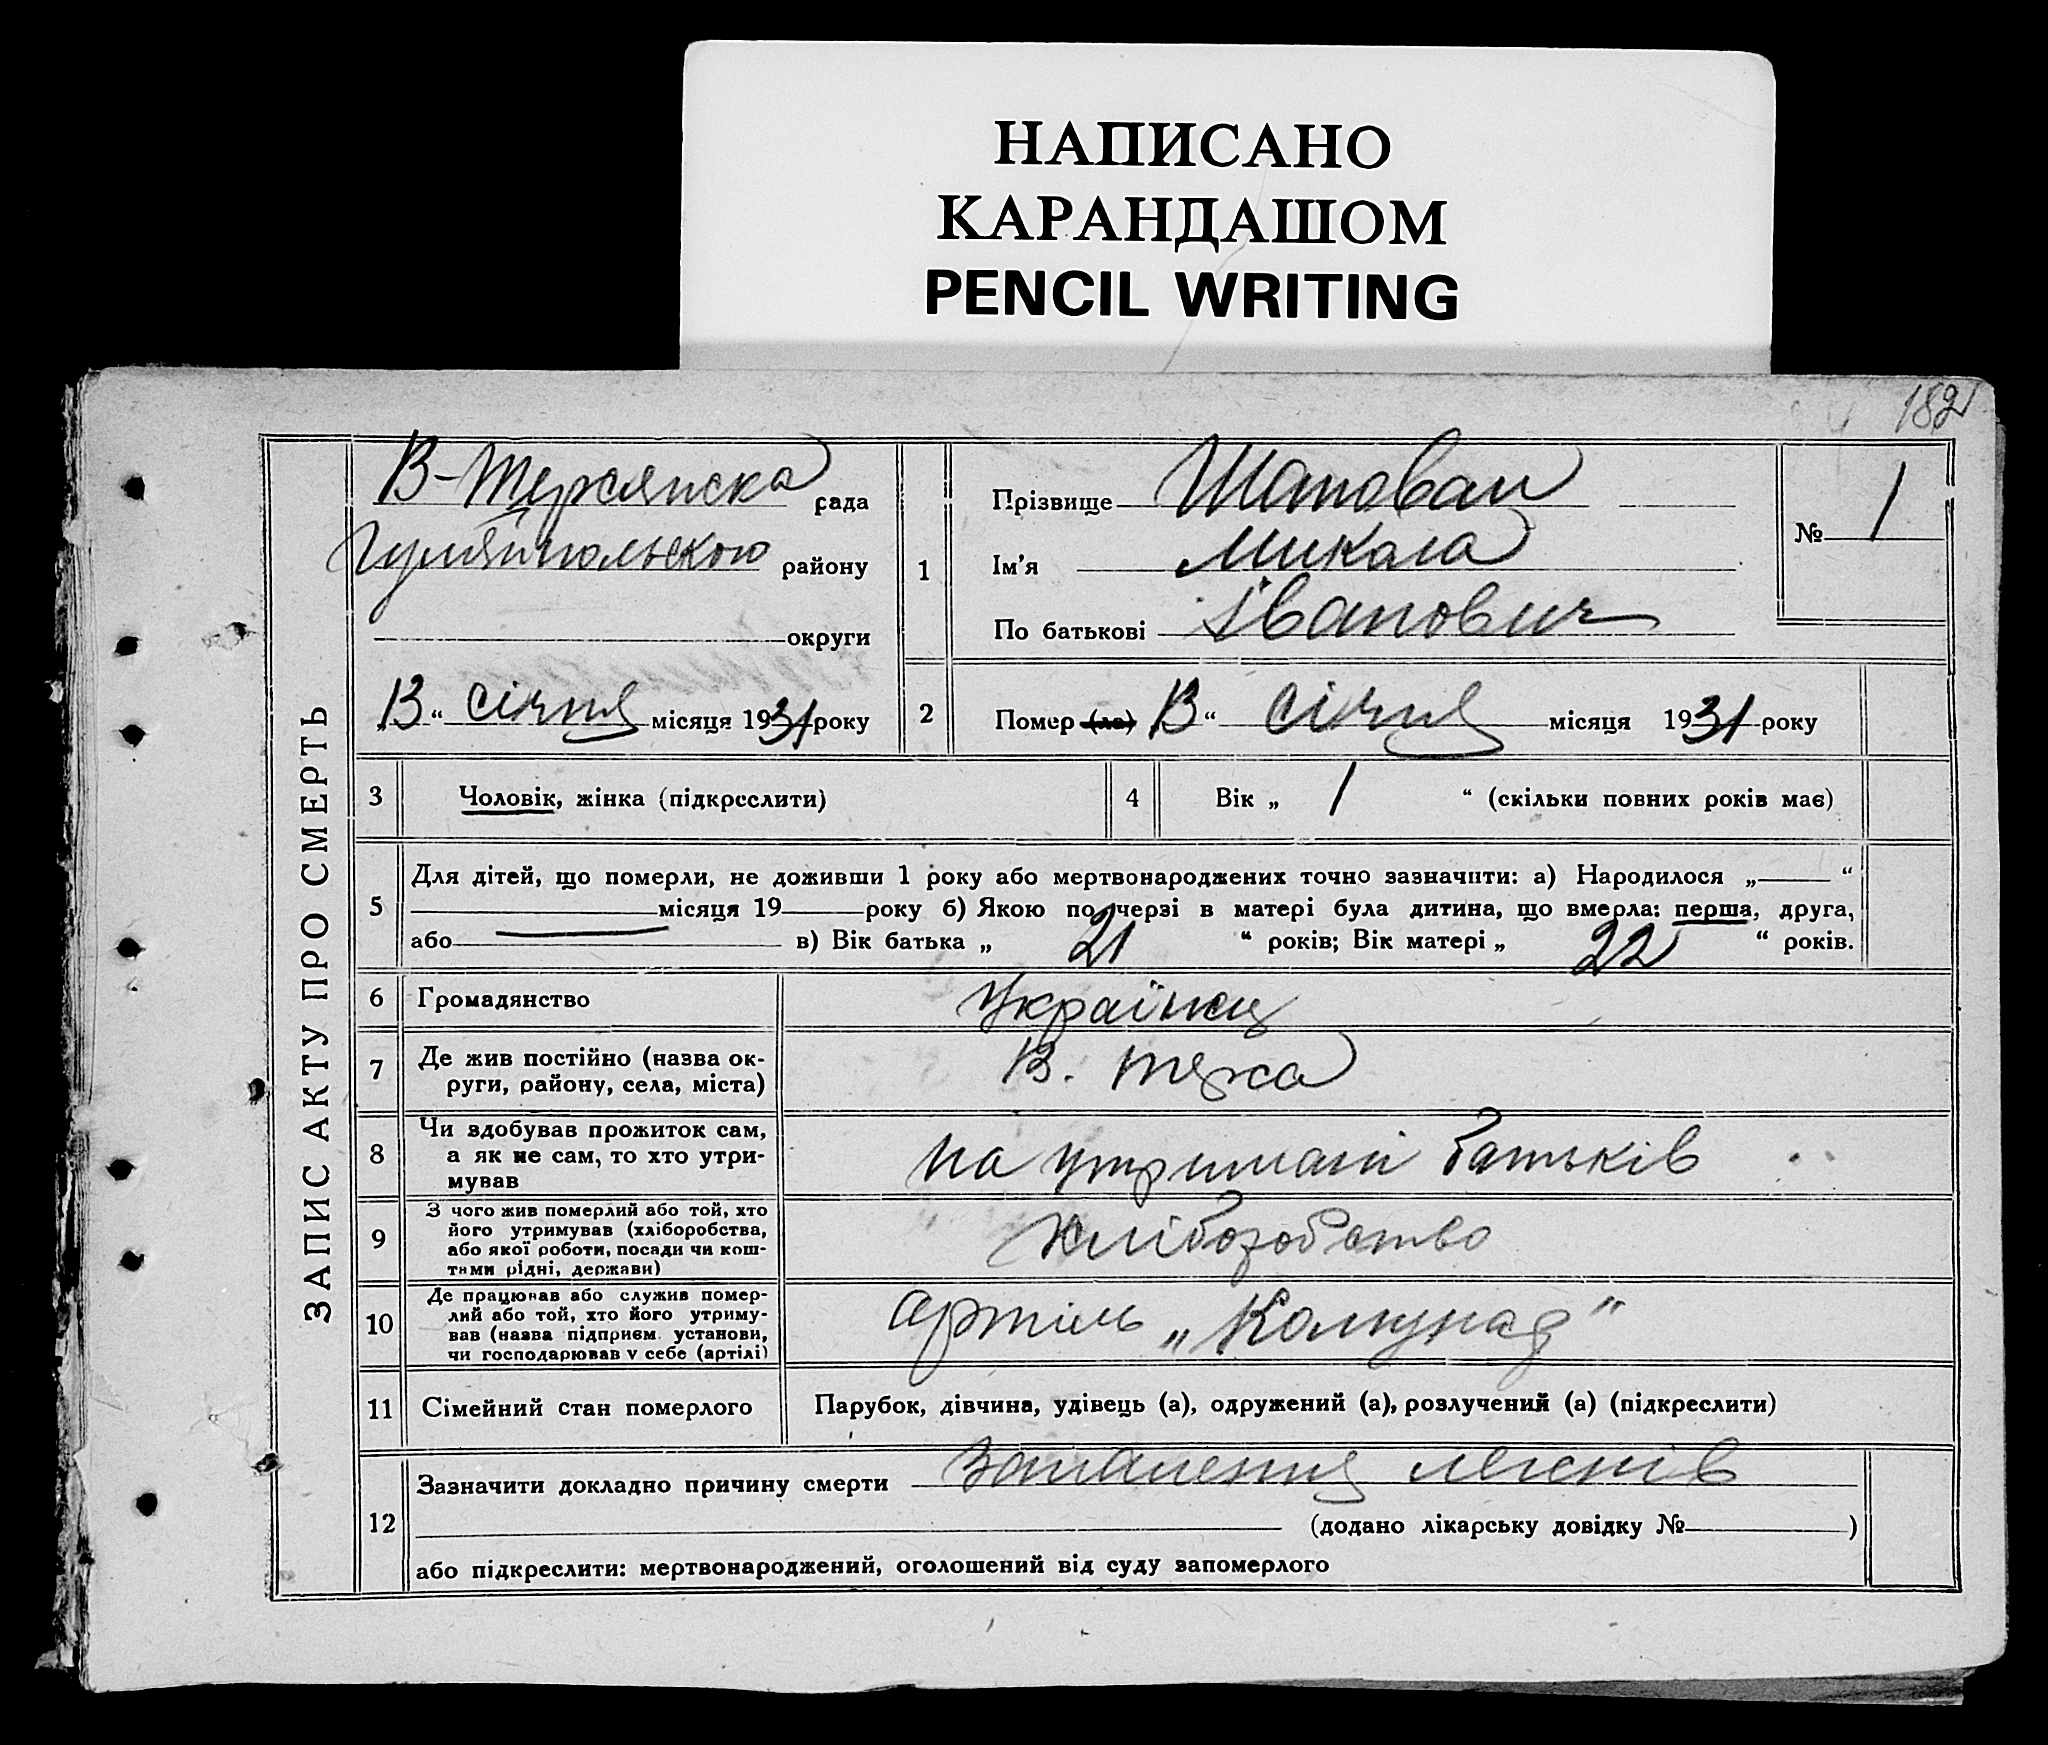 НАПИСАНО
КАРАНДАШОМ
PENCIL WRITING
182
ЗАПИС АКТУ ПРО СМЕРТЬ
В-Терсянска рада
Гуляйпольского району
округи
„13“ січня місяця 1931 року
1
Прізвище Шаповал
Ім'я Микола
По батькові Іванович
№ 1
2
Помер (ла) 13“ січня місяця 1931 року
3
Чоловік, жінка (підкреслити)
4
Вік „ 1 “ (скільки повних років має)
5
Для дітей, що померли, не доживши 1 року або мертвонароджених точно зазначити: а) Народилося „ “
місяця 19 року б) Якою по черзі в матері була дитина, що вмерла: перша, друга,
або в) Вік батька „ 21 “ років; Вік матері „ 22 “ років.
6
Громадянство
Українец
7
Де жив постійно (назва ок-
руги, району, села, міста)
В. терса
8
Чи здобував прожиток сам,
а як не сам, то хто утри-
мував
на утримані батьків
9
З чого жив померлий або той, хто
його утримував (хліборобства,
або якої роботи, посади чи кош-
тами рідні, держави)
Хліборобство
10
Де працював або служив помер-
лий або той, хто його утриму-
вав (назва підприєм. установи,
чи господарював у себе (артілі)
артіль „Комунар“
11
Сімейний стан померлого
Парубок, дівчина, удівець (а), одружений (а), розлучений (а) (підкреслити)
12
Зазначити докладно причину смерти Запалення легенів
(додано лікарську довідку № )
або підкреслити: мертвонароджений, оголошений від суду запомерлого